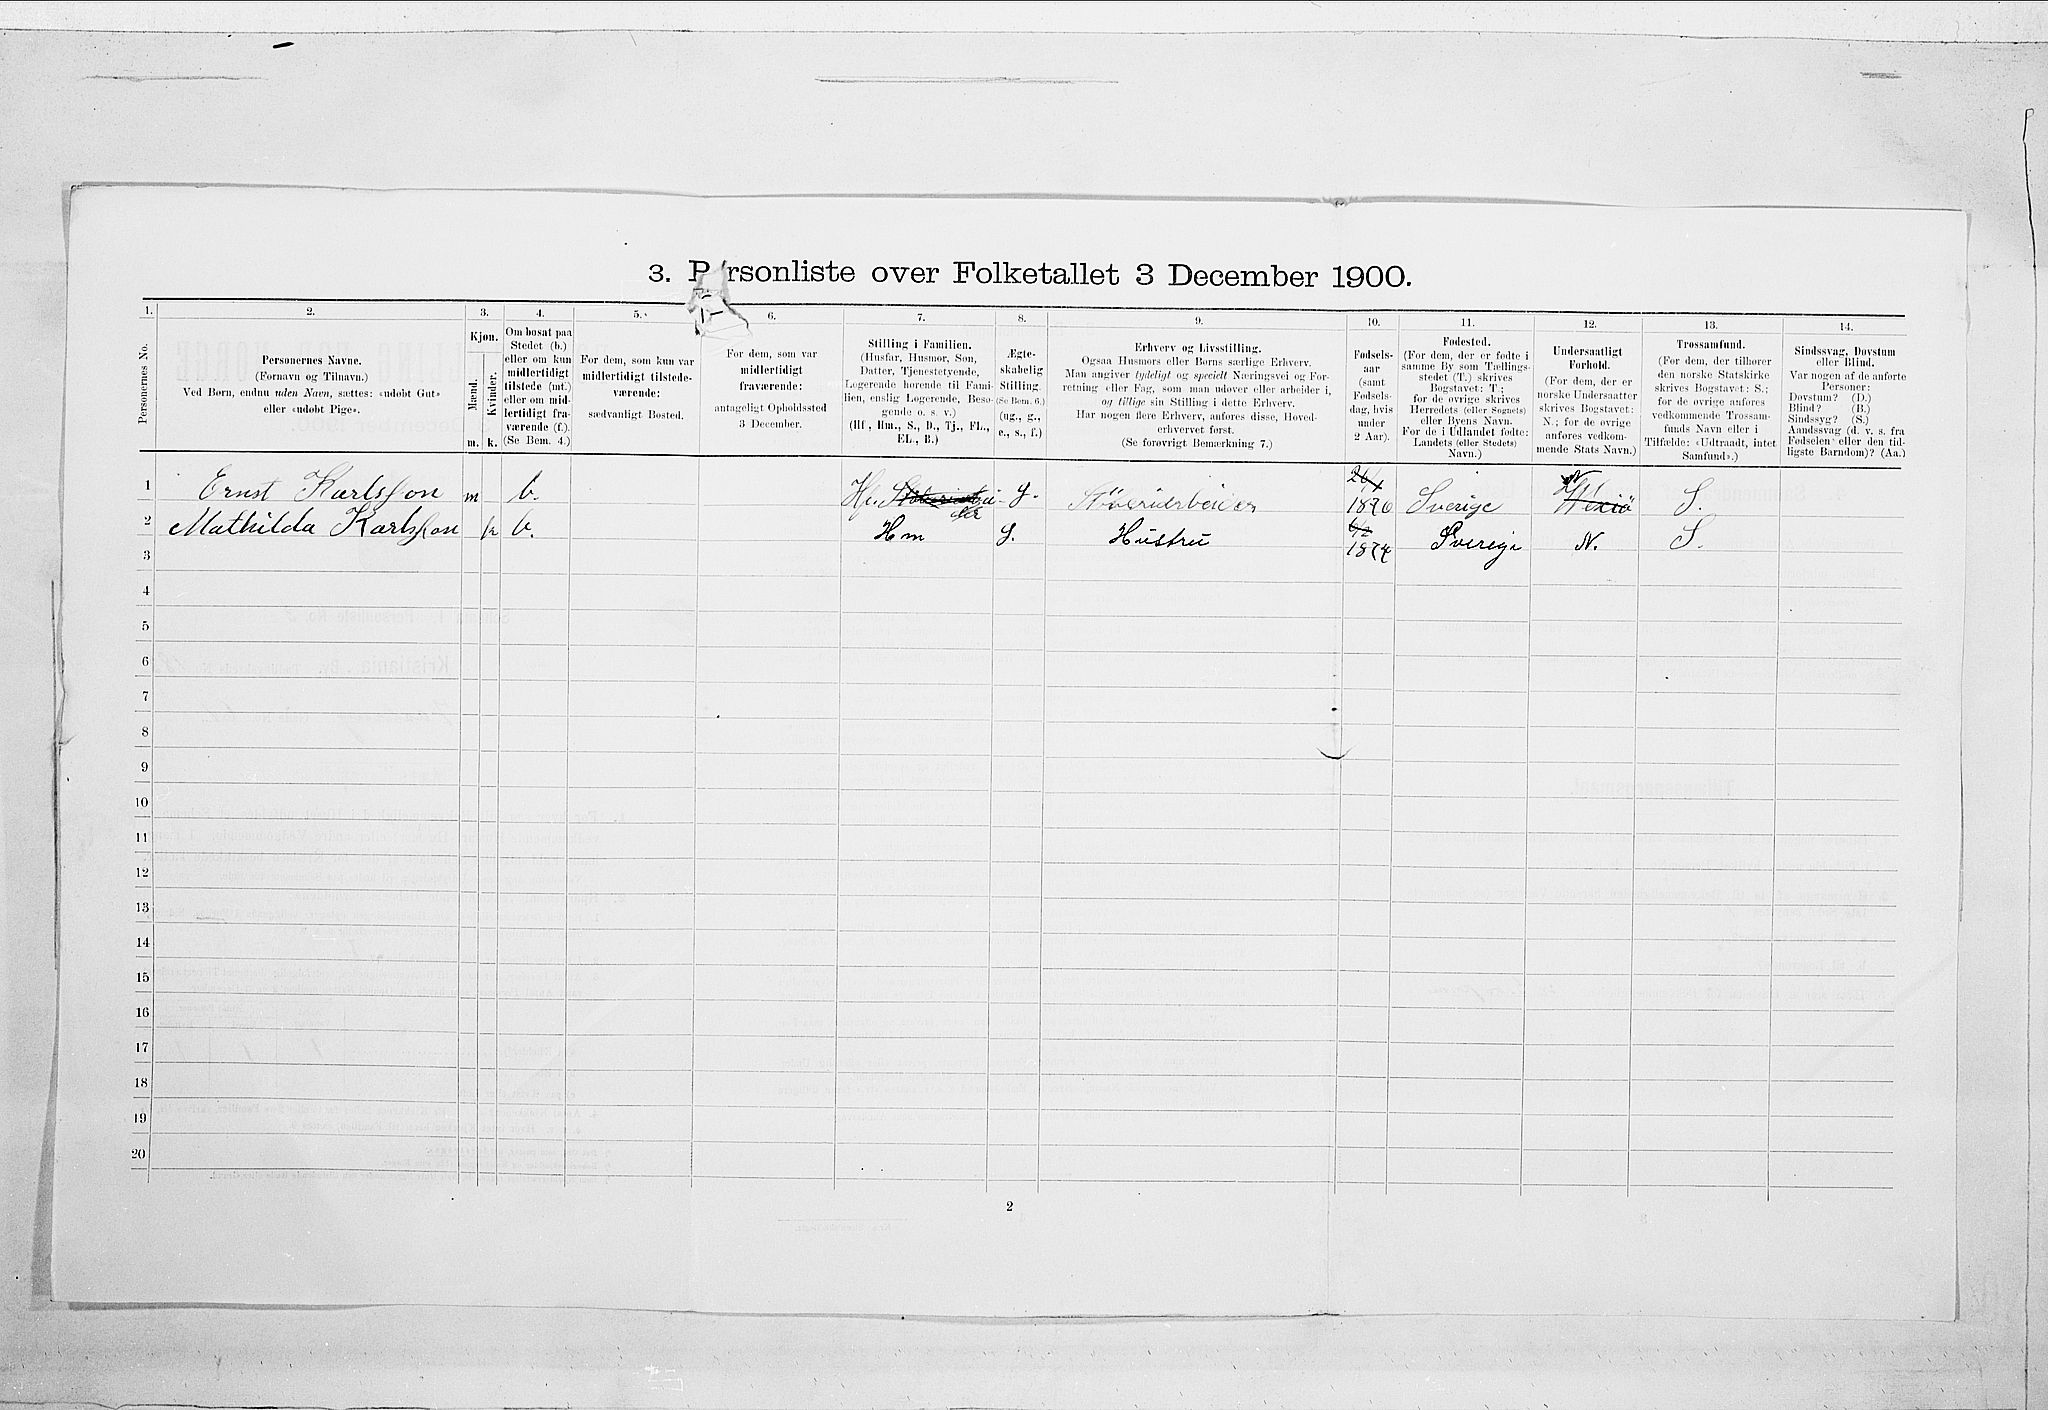 3. Personliste over Folketallet 3 December 1900.
1. 2. 3. 4. 5. 6. 7. 8. 9. 10. 11. 12. 13. 14.
Personernes No.
Personernes Navne.
(Fornavn og Tilnavn.)
Ved Børn, endnu uden Navn, sættes: «udøbt Gut»
eller «udøbt Pige».
Kjøn.
Mænd.
Kvinder.
m. k.
Om bosat paa
Stedet (b.)
eller om kun
midlertidigt
tilstede (mt.)
eller om mid-
lertidigt fra-
værende (f.).
(Se Bem. 4.)
For dem, som kun var
midlertidigt tilstede-
værende:
sædvanligt Bosted.
For dem, som var
midlertidigt
fraværende:
antageligt Opholdssted
3 December.
Stilling i Familien.
(Husfar, Husmor, Søn,
Datter, Tjenestetyende,
Logerende hørende til Fami-
lien, enslig Logerende, Besø-
gende o. s. v.)
(Hf., Hm., S., D., Tj., FL.,
EL., B.)
Ægte-
skabelig
Stilling.
(Se Bem. 6.)
(ug., g.,
e., s., f.)
Erhverv og Livsstilling.
Ogsaa Husmors eller Børns særlige Erhverv.
Man angiver tydeligt og specielt Næringsvei og For-
retning eller Fag, som man udøver eller arbeider i,
og tillige sin Stilling i dette Erhverv.
Har nogen flere Erhverv, anføres disse, Hoved-
erhvervet først.
(Se forøvrigt Bemærkning 7.)
Fødsels-
aar
(samt
Fødsels-
dag, hvis
under
2 Aar).
Fødested.
(For dem, der er fødte i
samme By som Tællings-
stedet (T.) skrives
Bogstavet: T.;
for de øvrige skrives
Herredets (eller Sognets)
eller Byens Navn.
For de i Udlandet fødte:
Landets (eller Stedets)
Navn.)
Undersaatligt
Forhold.
(For dem, der er
norske Undersaatter
skrives Bogstavet:
N.; for de øvrige
anføres vedkom-
mende Stats Navn.)
Trossamfund.
(For dem, der tilhører
den norske Statskirke
skrives Bogstavet: S.;
for de øvrige anføres
vedkommende Trossam-
funds Navn eller i
Tilfælde: «Udtraadt, intet
Samfund».)
Sindssvag, Døvstum
eller Blind.
Var nogen af de anførte
Personer:
Døvstum? (D.)
Blind? (B.)
Sindssyg? (S.)
Aandssvag (d. v. s. fra
Fødselen eller den tid-
ligste Barndom)? (Aa.)
1 Ernst Karlsson m b. Hf. g. 1876 Sverige N S.
2 Mathilda Karlsson k b. Hm g. Hustru 1874 Sverige N. S.
3
4
5
6
7
8
9
10
11
12
13
14
15
16
17
18
19
20
2